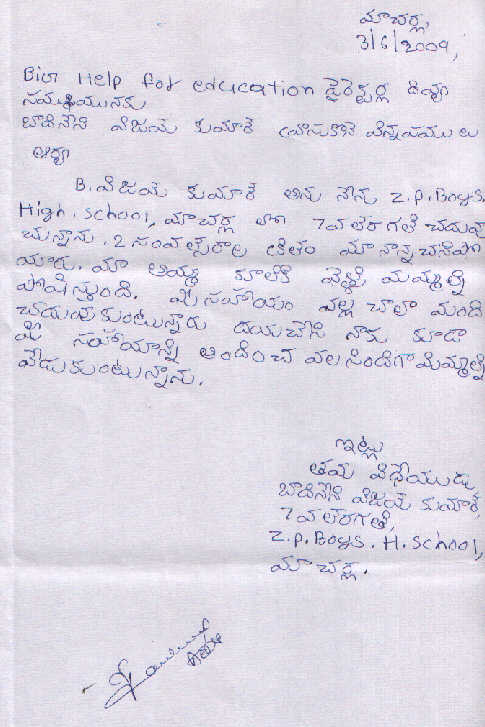 మాచర్ల,
3/6/2009,
Bioa Help for education డైరెక్టర్ల దివ్య
సముఖమునకు
బాదినేని విజయ కుమార్ వ్రాసుకొనే విన్నపములు
ఆర్యా
B. విజయ కుమార్ అను నేను Z.P. Boys.
High. School, మాచర్ల లో 7వ తరగతి చదువు
చున్నాను. 2 సంవత్సరాల క్రితం మా నాన్న చనిపో
యారు. మా అమ్మ కూలికి వెళ్ళి మమ్మల్ని
పోషిస్తుంది. మీ సహాయం వల్ల చాలా మంది
చదువుకుంటున్నారు దయచేసి నాకు కూడా
మీ సహాయాన్ని అందించ వలసిందిగా మిమ్మల్ని
వేడుకుంటున్నాను.
ఇట్లు
తమ విధేయుడు
బాదినేని విజయ కుమార్,
7వ తరగతి,
Z.P. Boys. H. School,
మాచర్ల.